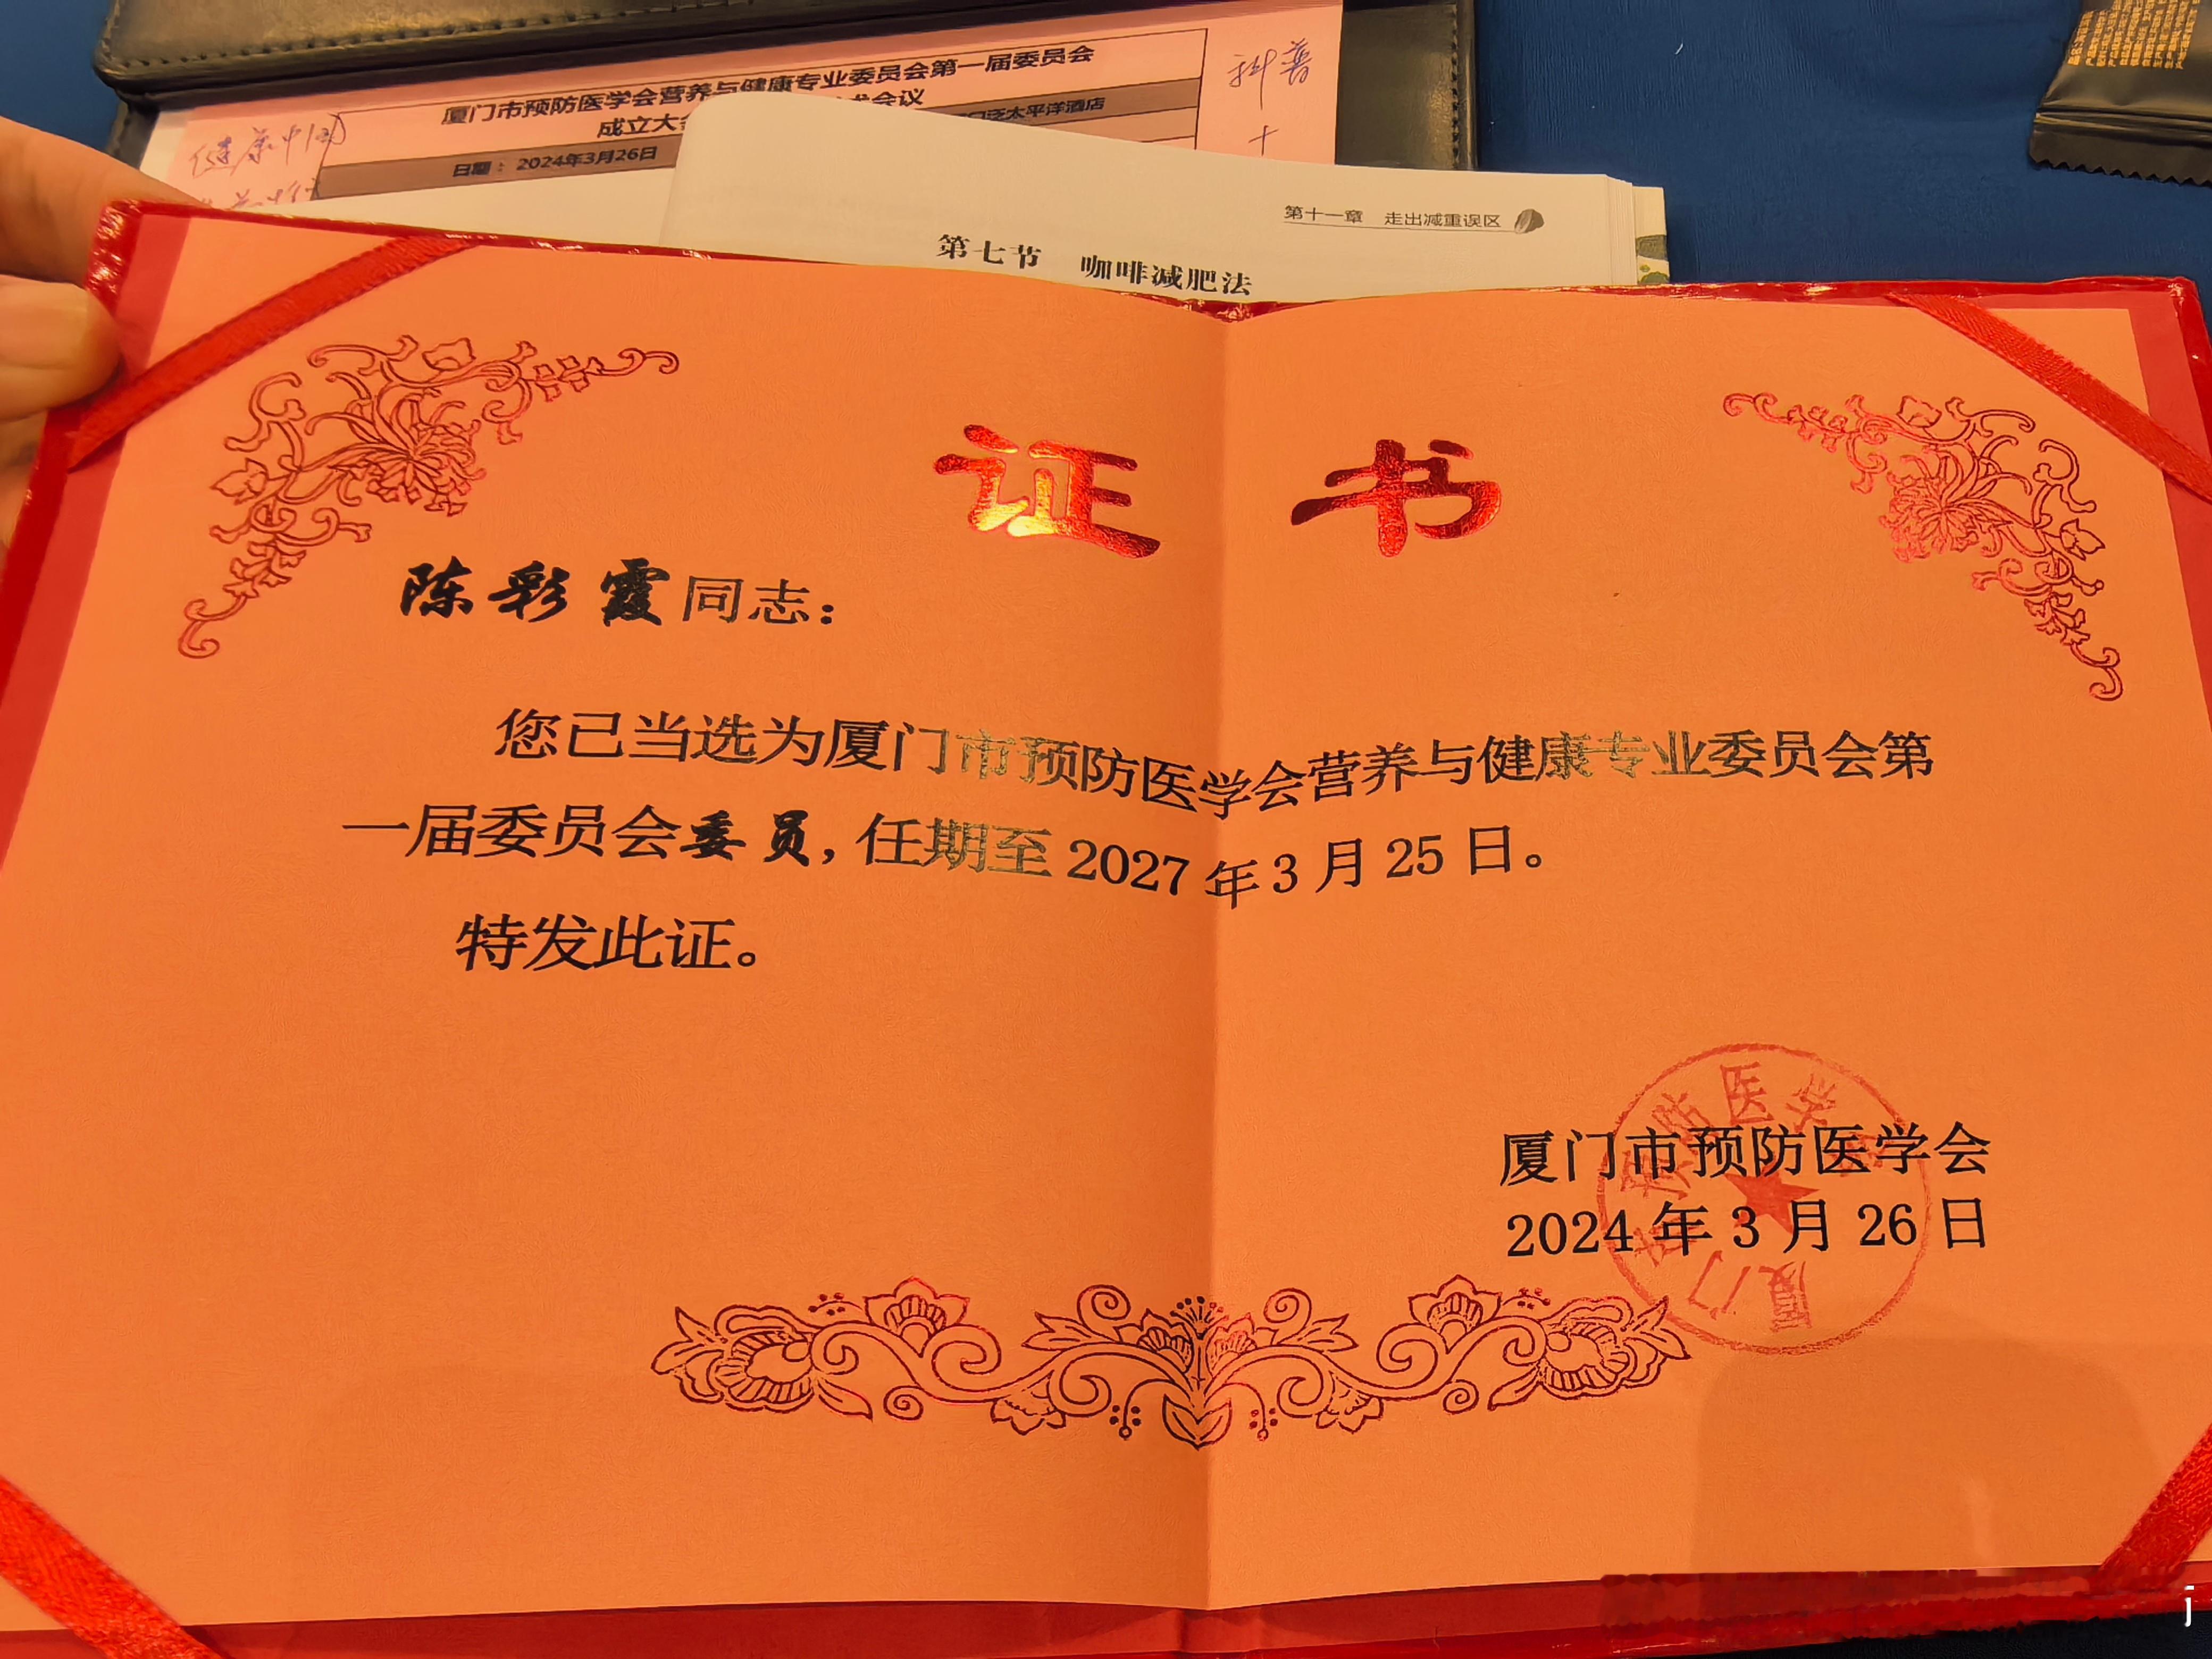 厦门市预防医学会营养与健康专业委员会第一届委员会
成立大会
术会议
日期： 2024年3月26日
泛太平洋酒店
健康中国
科普
第十一章 走出减重误区
第七节 咖啡减肥法
证书
陈彩霞同志：
您已当选为厦门市预防医学会营养与健康专业委员会第
一届委员会委员，任期至 2027 年 3 月 25 日。
特发此证。
厦门市预防医学会
2024 年 3 月 26 日
厦门市预防医学会